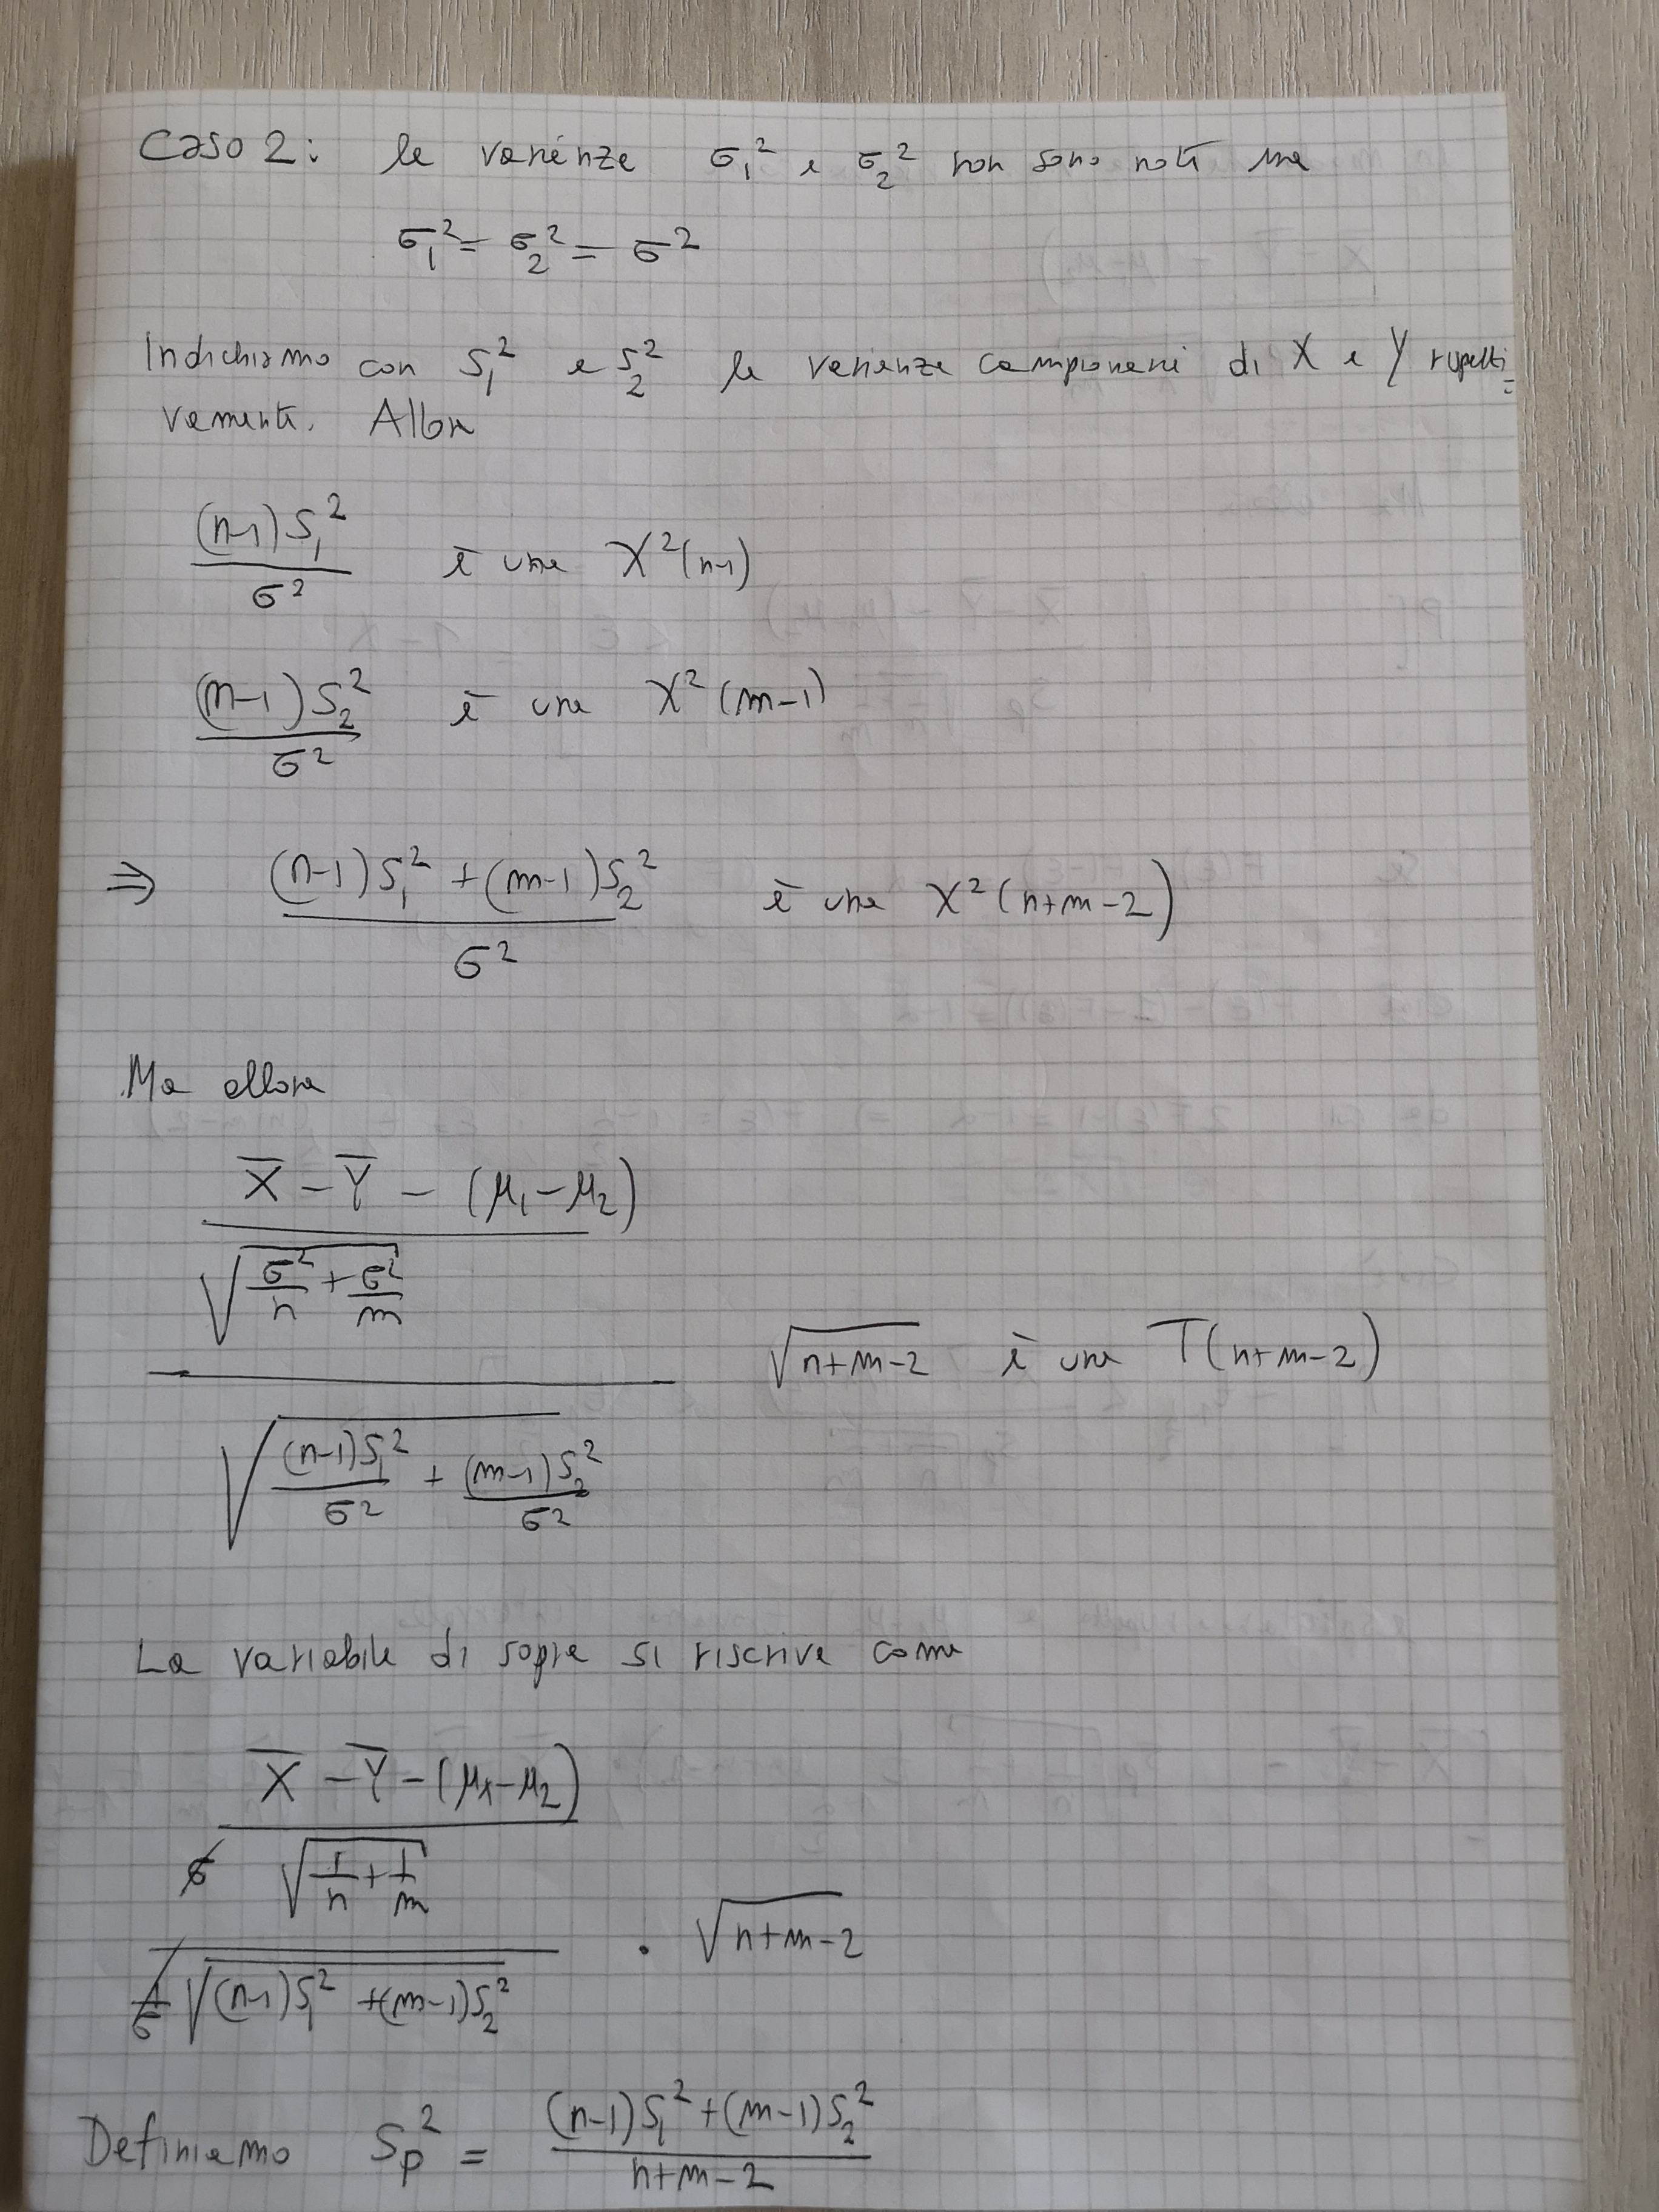 Caso 2: le varianze σ₁² e σ₂² non sono note ma
σ₁² = σ₂² = σ²
Indichiamo con S₁² e S₂² le varianze campionarie di X e Y rispetti=
vamente. Allora
(n-1)S₁² / σ² è una χ²(n-1)
(m-1)S₂² / σ² è una χ²(m-1)
⇒ ((n-1)S₁² + (m-1)S₂²) / σ² è una χ²(n+m-2)
Ma allora
X̄ - Ȳ - (μ₁-μ₂)
√(σ²/n + σ²/m)
√(n+m-2) è una T(n+m-2)
√((n-1)S₁²/σ² + (m-1)S₂²/σ²)
La variabile di sopra si riscrive come
X̄ - Ȳ - (μ₁-μ₂)
σ √(1/n + 1/m)
· √(n+m-2)
1/σ √((n-1)S₁² + (m-1)S₂²)
Definiamo Sp² = ((n-1)S₁² + (m-1)S₂²) / (n+m-2)